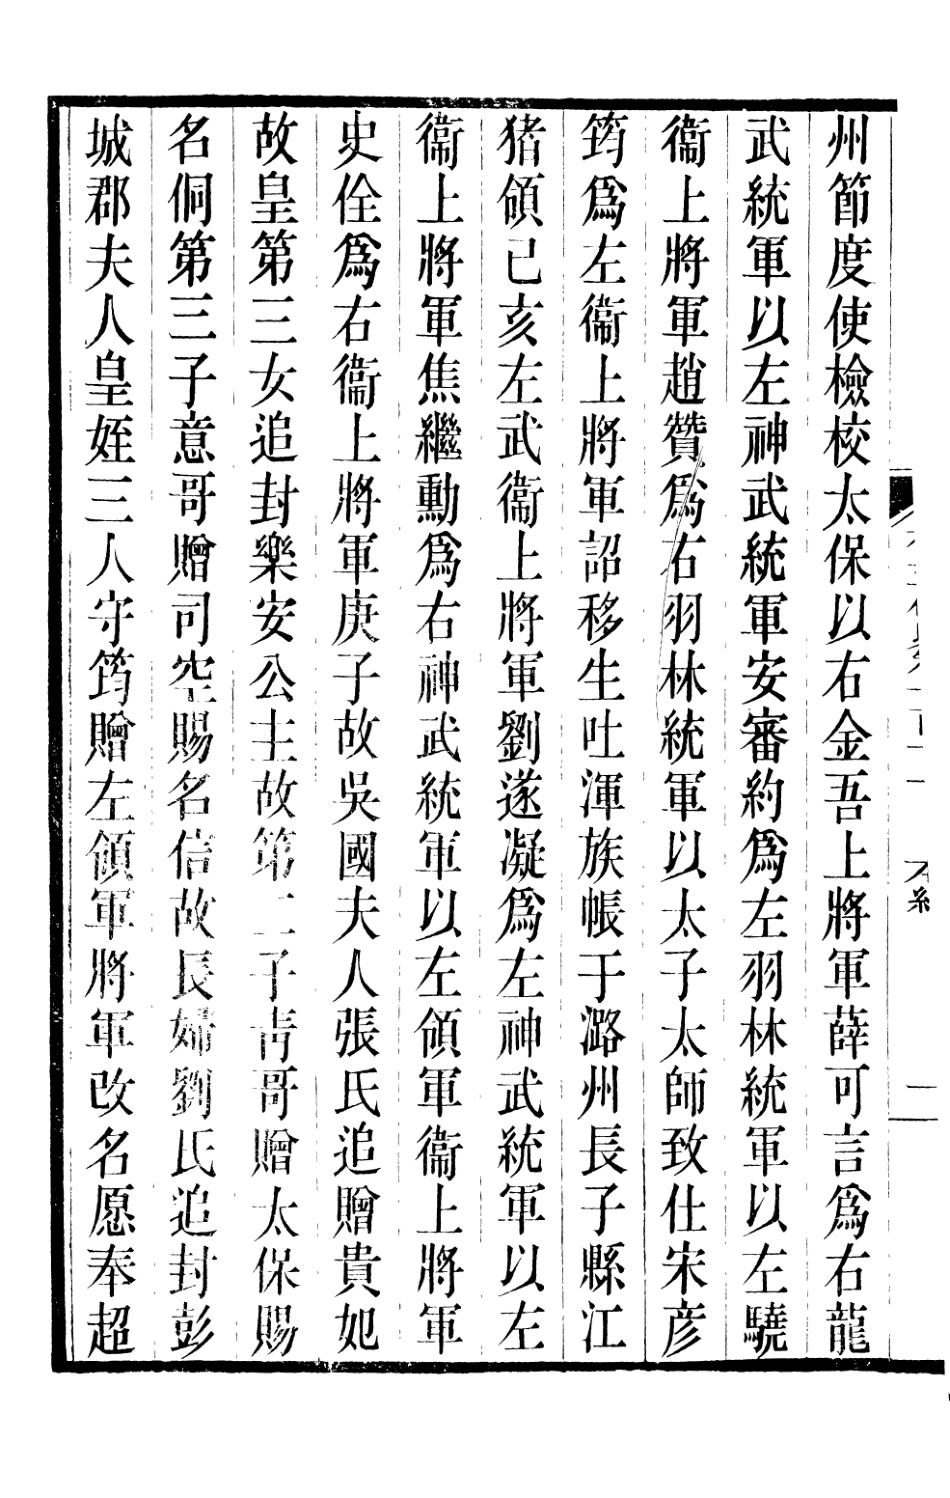 州節度使檢校太保以右金吾上將軍薛可言爲右龍
武統軍以左神武統軍安審約爲左羽林統軍以左驍
衞上將軍趙贊爲右羽林統軍以太子太師致仕宋彦
筠爲左衞上將軍詔移生吐渾族帳于潞州長子縣江
猪嶺己亥左武衞上將軍劉遂凝爲左神武統軍以左
衞上將軍焦繼勳爲右神武統軍以左領軍衞上將軍
史佺爲右衞上將軍庚子故吳國夫人張氏追贈貴妃
故皇第三女追封樂安公主故第二子靑哥贈太保賜
名侗第三子意哥贈司空賜名信故長婦劉氏追封彭
城郡夫人皇姪三人守筠贈左領軍將軍改名愿奉超